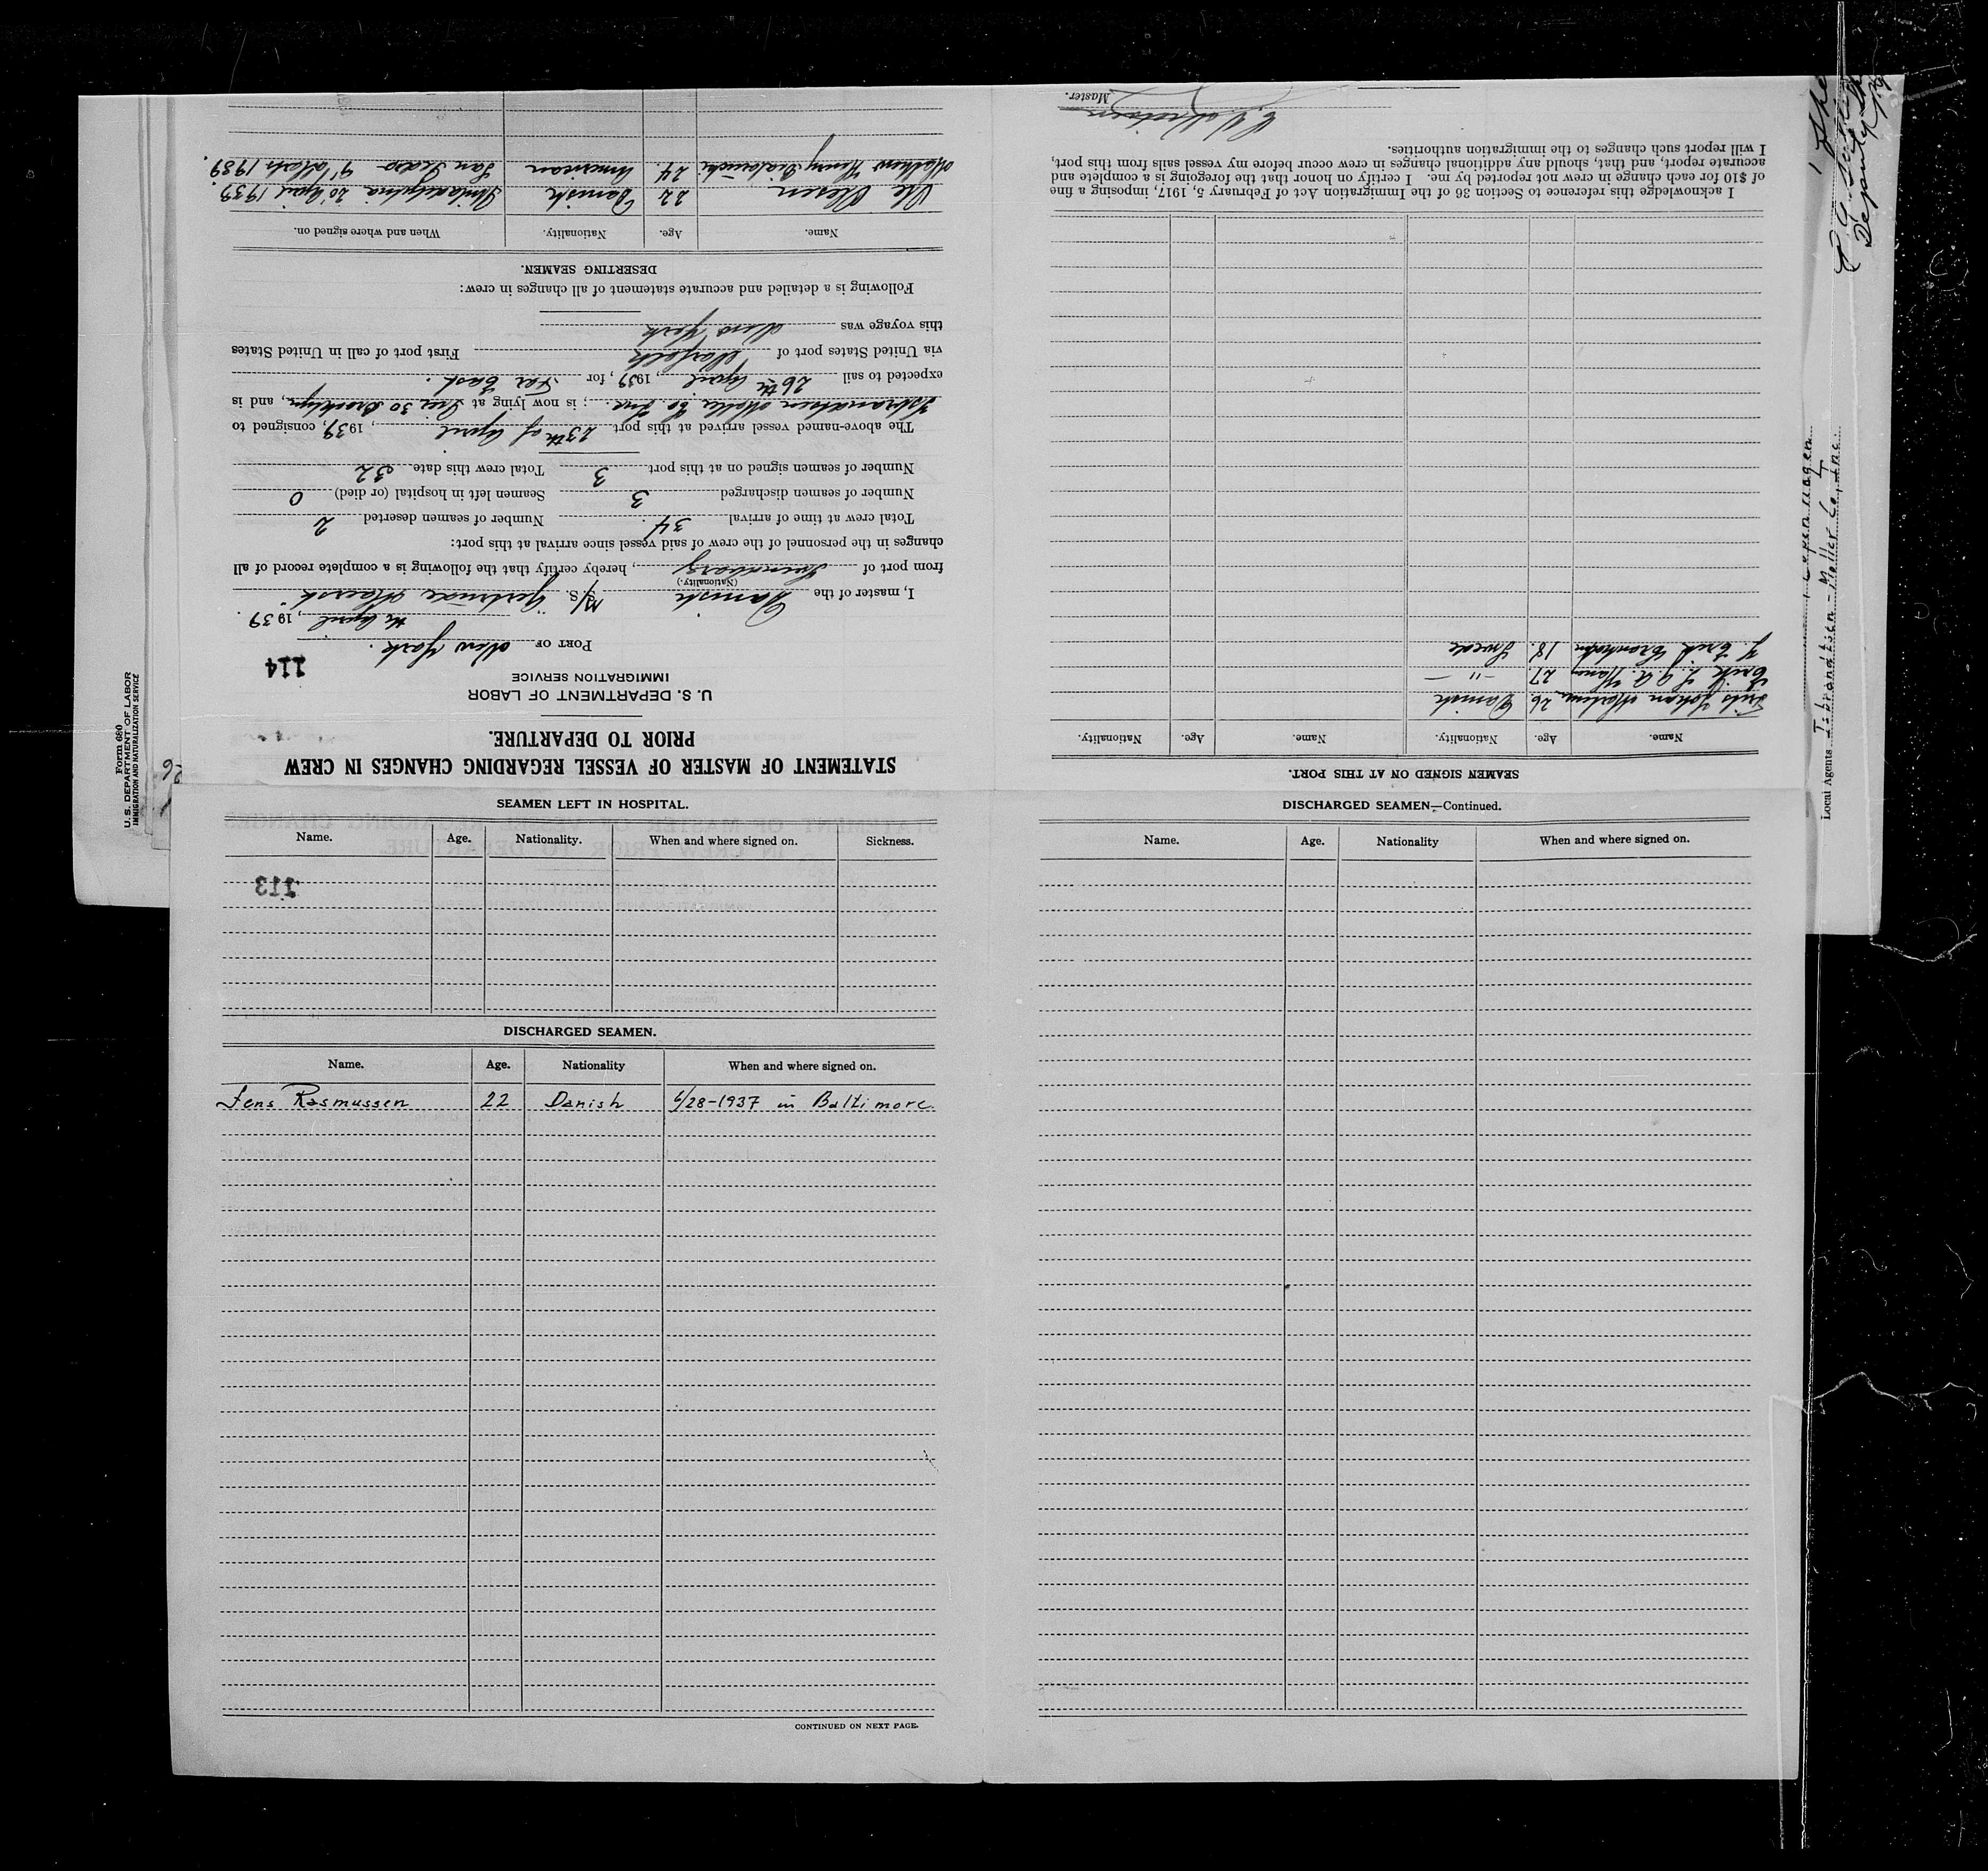 STATEMENT OF MASTER OF VESSEL REGARDING CHANGES IN CREW
PRIOR TO DEPARTURE.
U. S. DEPARTMENT OF LABOR
IMMIGRATION SERVICE
114
PORT OF New York.
th April, 1939.
I, master of the Danish M/S. "Gertrude Maersk"
(Nationality.)
from port of Svendborg, hereby certify that the following is a complete record of all
changes in the personnel of the crew of said vessel since arrival at this port:
Total crew at time of arrival 34. Number of seamen deserted 2
Number of seamen discharged 3 Seamen left in hospital (or died) 0
Number of seamen signed on at this port 3 Total crew this date 32
The above-named vessel arrived at this port 23th of April, 1939, consigned to
Isbrandtsen Moller Co Inc.; is now lying at Pier 30 Brooklyn, and is
expected to sail 26th April, 1939, for Far East.
via United States port of Norfolk First port of call in United States
this voyage was New York
Following is a detailed and accurate statement of all changes in crew:
DESERTING SEAMEN.
Name. Age. Nationality. When and where signed on.
Ole Olesen 22 Danish 20' April 1939
Mathew Henry 24. American San Pedro 9' Marts 1939.
SEAMEN SIGNED ON AT THIS PORT.
Name. Age. Nationality. Name. Age. Nationality.
Johan 26 Danish
Erik 27 — " —
Erik 18. Swede
I acknowledge this reference to Section 36 of the Immigration Act of February 5, 1917, imposing a fine
of $10 for each change in crew not reported by me. I certify on honor that the foregoing is a complete and
accurate report, and that, should any additional changes in crew occur before my vessel sails from this port,
I will report such changes to the immigration authorities.
Master.
SEAMEN LEFT IN HOSPITAL.
Name. Age. Nationality. When and where signed on. Sickness.
113
DISCHARGED SEAMEN.
Name. Age. Nationality When and where signed on.
Jens Rasmussen 22 Danish 6/28-1937 in Baltimore.
CONTINUED ON NEXT PAGE.
DISCHARGED SEAMEN—Continued.
Name. Age. Nationality When and where signed on.
Form 680
U. S. DEPARTMENT OF LABOR
IMMIGRATION AND NATURALIZATION SERVICE
26
Copenhagen
Local Agents Isbrandtsen-Moller Co, Inc.
Deputy